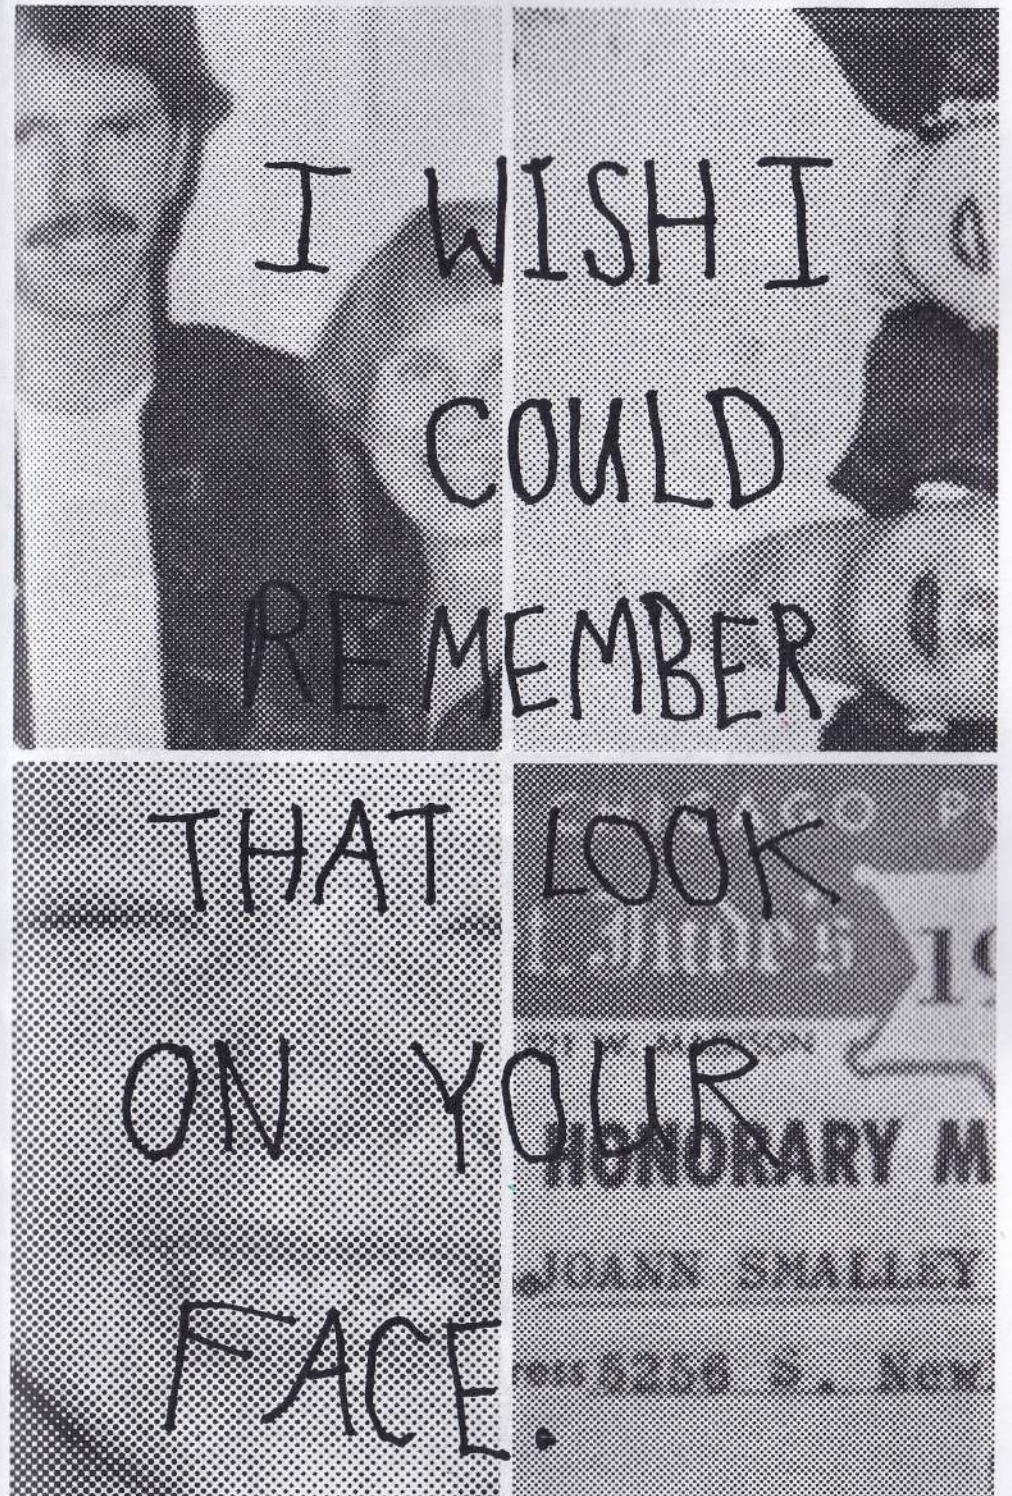 I WISH I
COULD
REMEMBER
THAT LOOK
ON YOUR
FACE.
19
HONORARY M
JOANN SMALLEY
ress 5256 S. New